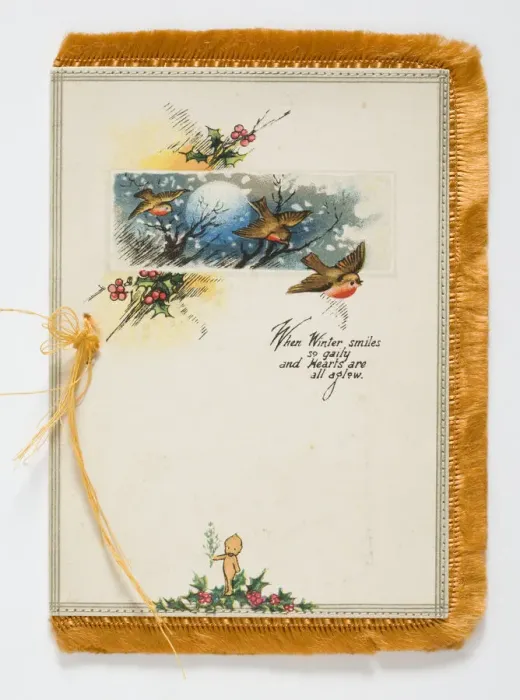 When Winter smiles
so gaily
and Hearts are
all aglow.